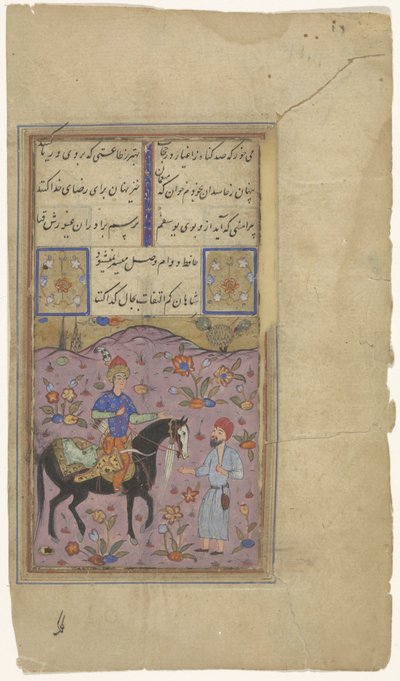 می خور که صد گناه ز اغیار در حجاب بهتر ز طاعتی که بروی و ریا کنند
پنهان ز حاسدان بخودم خوان که منعمان خیر نهان برای رضای خدا کنند
پیراهنی که آید ازو بوی یوسفم ترسم برادران غیورش قبا
حافظ دوام وصل میسر نمیشود
شاهان کم التفات بحال گدا کنند